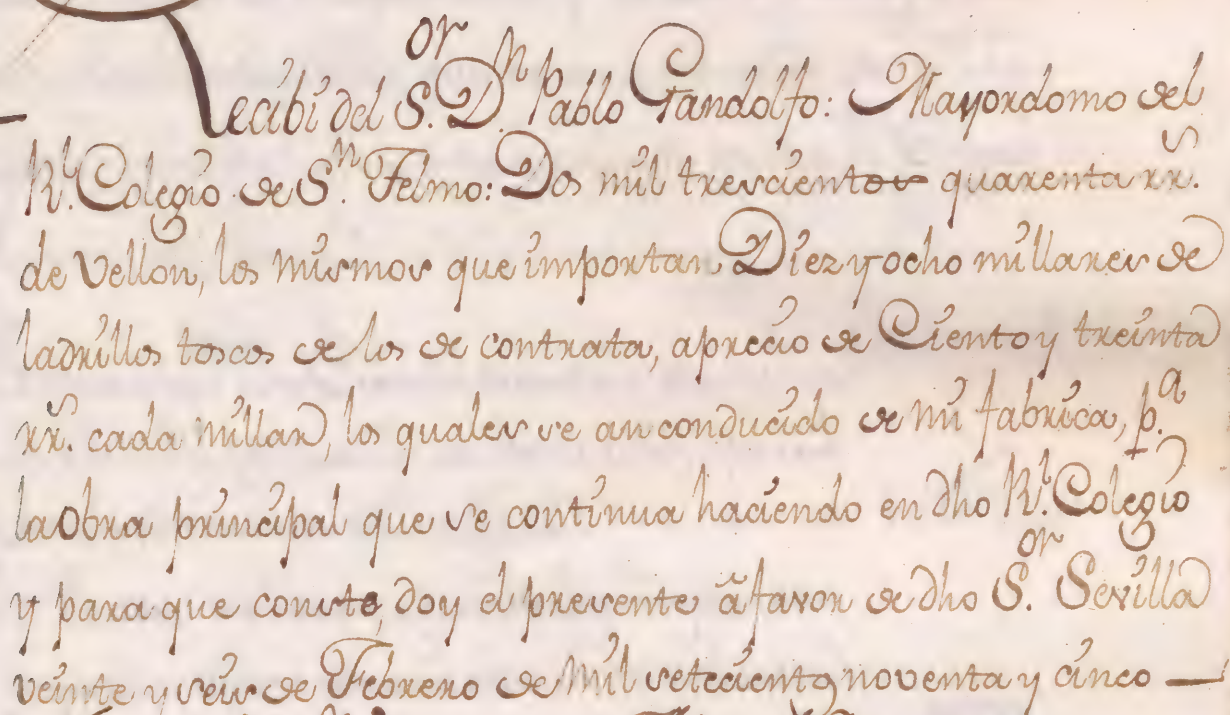 Recibi del S.or D.n Pablo Gandolfo: Mayordomo del
R.l Colegio de S.n Telmo: Dos mil trescientos quarenta rr.s
de Vellon, los mismos que importan Diez y ocho millares de
ladrillos toscos de los de contrata, a precio de Ciento y treinta
rr.s cada millar, los quales se an conducido de mi fabrica, p.a
la Obra principal que se continua haciendo en dho R.l Colegio
y para que conste, doy el presente â favor de dho S.or Sevilla
veinte y seis de Febrero de Mil setecientos noventa y cinco —